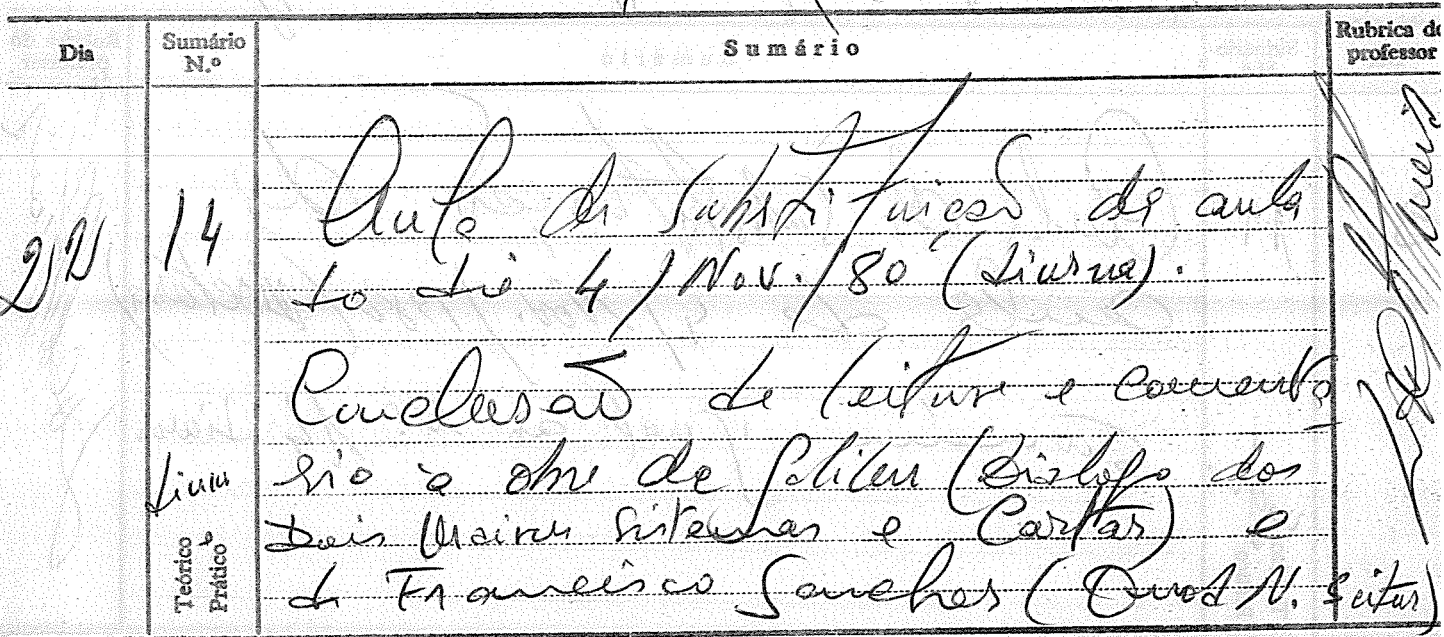 Dia
Sumário N.º
Sumário
Rubrica do professor
14
Aula de substituição da aula
do dia 4/Nov./80 (diurna).
Conclusão da leitura e comentá-
rio à obra de Galileu (Diálogo dos
Dois Maiores Sistemas e Cartas) e
de Francisco Sanches (Quod N. Scitur)
Teórico
Prático